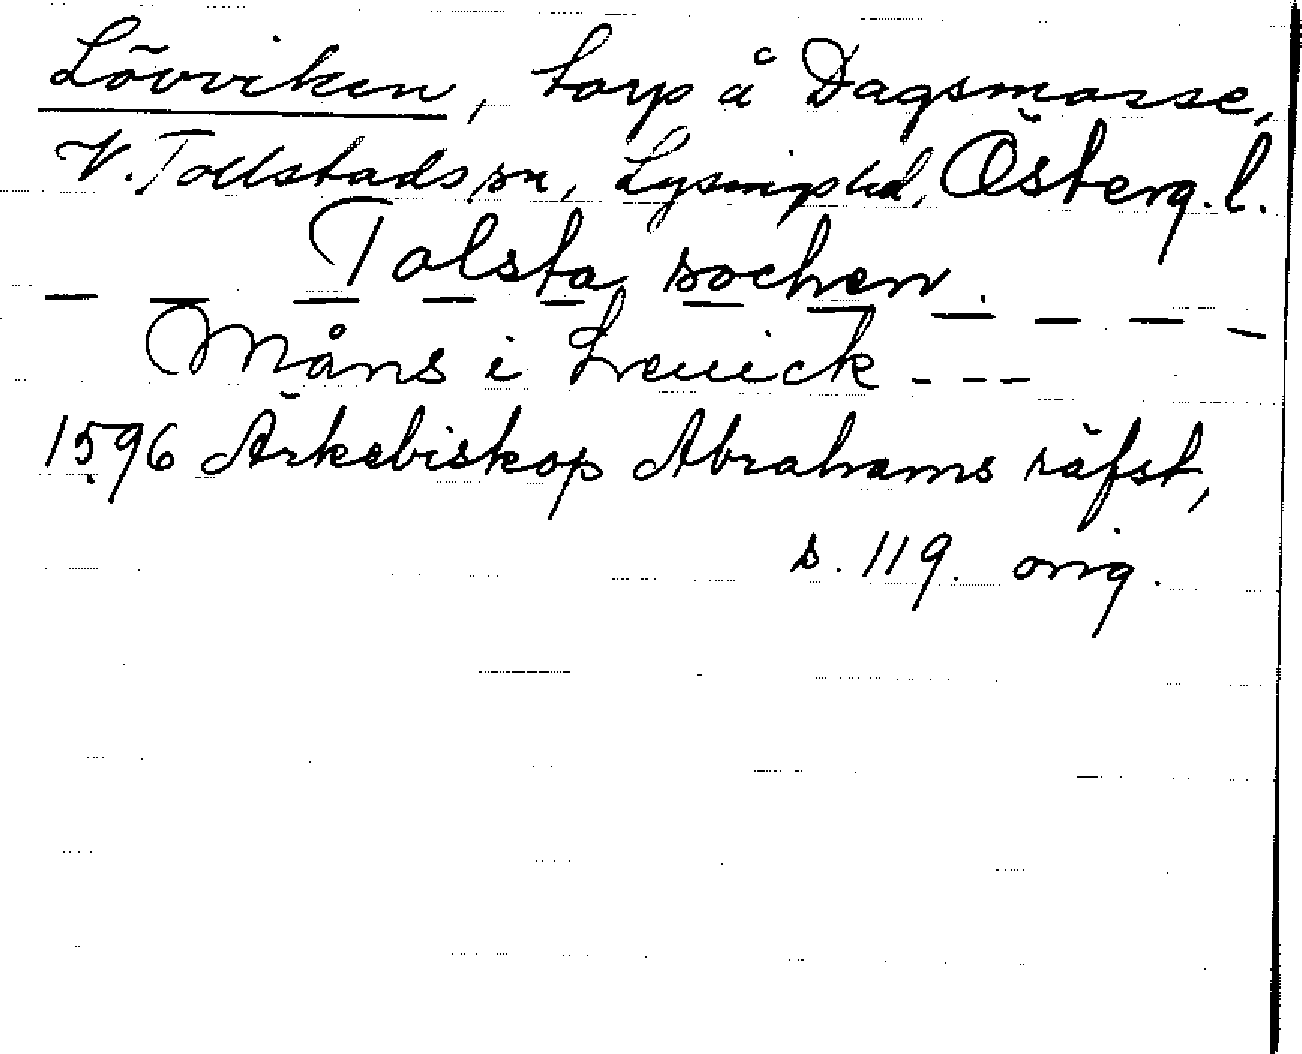 Lövviken, torp å Dagsmosse,
V. Tollstads sn, Lysings hd, Österg. l.
Tolsta sochen.
_ _ _ _ _ _ _ _ _ _ _
Måns i Leuick - - -
1596 Ärkebiskop Abrahams räfst,
s. 119. orig.